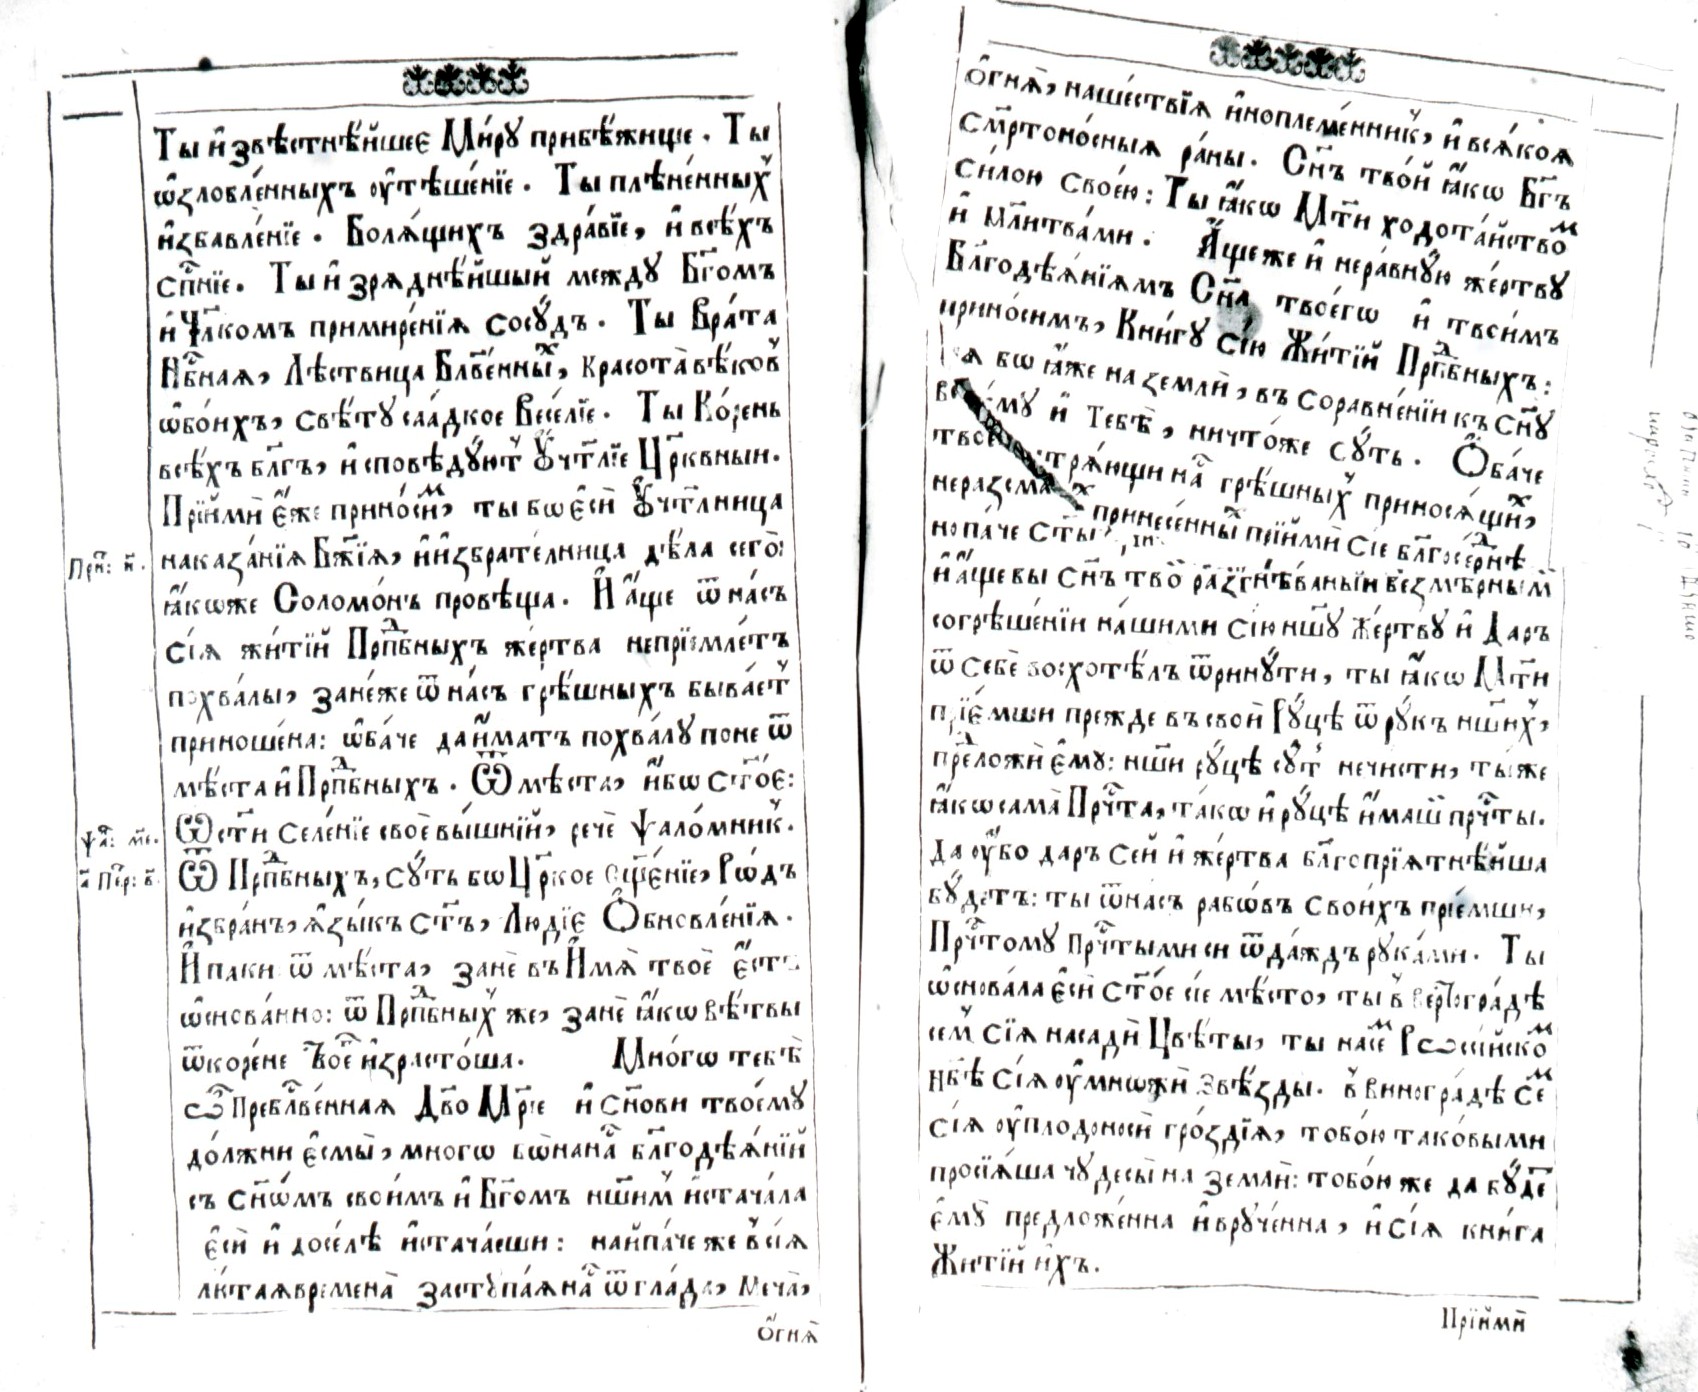 Ты и҆звѣстнѣ́йшеє Ми́рꙋ прибѣ́жище. Ты
ѡ҆зло́вленныхъ ᲂу҆тѣше́нїе. Ты плѣне́нныхъ
и҆збавле́нїе. Болѧ́щихъ здра́вїе, и҆ всѣ́хъ
сп҃нїе. Ты и҆зрѧднѣ́йшый между Бг҃омъ
и҆ Чл҃комъ примире́нїѧ сосꙋ́дъ. Ты Врата
Нб҃наѧ, Лѣствица Блв҃е́нныⷯ, красота̀ вѣкѡ́въ
ѡ҆бои́хъ, свѣ́тꙋ сла́дкое Весе́лїе. Ты Ко́рень
всѣ́хъ бл҃гъ, и҆сповѣ́дꙋютъ Оу҆чт҃лїе Цр҃квнын.
Прїимѝ є҆́же прино́сиⷨ, ты бѡ є҆сѝ Оу҆чт҃лница
наказа́нїѧ Бж҃їѧ, и҆ и҆збрате́лница дѣ́ла сего̀:
ꙗ҆́коже Соломо́нъ провѣща. И҆ а҆́ще ѿ на́съ
сїѧ̀ жи́тїй Прⷣпбныхъ же́ртва непрїе́млетъ
похвалы̀, зане́же ѿ на́съ грѣ́шныхъ быва́етъ
приноше́на: ѡ҆ба́че да и҆́матъ похва́лꙋ поне ѿ
мѣ́ста и҆ Прⷣпбныхъ. Ѿ мѣ́ста, и҆́бѡ ст҃о́є:
Ѡ҆ст҃и селе́нїе своѐ вы́шнїй, речѐ ѱало́мникъ.
Ѿ Прⷣпбныхъ, сꙋ́ть бѡ Цр҃кое Сщ҃е́нїе, Рѡ́дъ
и҆збра́нъ, ꙗ҆зы́къ ст҃ъ, Лю́дїє Ѻ҆бновле́нїѧ.
И҆ паки ѿ мѣ́ста, занѐ въ И҆́мѧ твоѐ є҆́сть
ѡ҆снова́нно: ѿ Прⷣпбныхъ же, занѐ ꙗ҆́кѡ вѣ́твы
ѿ коре́не Твоегѡ̀ и҆зрасто́ша. Мно́гѡ тебѣ̀
ѽ Пребл҃ве́ннаѧ Дв҃о Мр҃їе и҆ Сн҃ови твоемꙋ̀
до́лжни є҆смы̀, многѡ бѡ на на́съ бл҃годѣѧ́нїй
съ Сн҃омъ свои́мъ и҆ Бг҃омъ нш҃имъ и҆стача́ла
є҆сѝ и҆ досе́лѣ и҆стача́еши: наипа́че же въ сїѧ̀
лю́таѧ времена̀ застꙋпа́ѧ на́съ ѿ гла́да, меча̀,
ѻ҆гнѧ̀
При́т: н҃.
Ѱа: м҃е.
а҃ Пе́т: в҃.
ѻ҆гнѧ̀, наше́ствїѧ и҆ноплеме́нникъ, и҆ всѧ́коѧ
См҃ртоно́сныѧ ра́ны. Сн҃ъ тво́й ꙗ҆́кѡ Бг҃ъ
си́лою свое́ю: Ты ꙗ҆́кѡ Мт҃и ходота́йствоⷨ
и҆ мл҃итва́ми. А҆́ще же и҆ нера́внꙋю же́ртвꙋ
Бл҃годѣѧ́нїѧмъ Сн҃а твоегѡ̀ и҆ твои́мъ
прино́симъ, Кни́гꙋ сїю̀ Жи́тїй Прⷣпбныхъ:
бѡ ꙗ҆́же на землѝ, въ соравне́нїи къ Сн҃ꙋ
и҆ Тебѣ̀, ничто́же сꙋ́ть. Ѻ҆ба́че
на́съ грѣ́шныхъ приносѧ́щиⷯ,
принесе́нныⷯ прїимѝ сїе бл҃госе́рднѣ
но па́че ст҃ы
и҆ а҆́ще бы Сн҃ъ тво́й разгнѣ́ваныи безмѣ́рныⷨ
согрѣше́нїи на́шими сїю̀ нш҃ꙋ же́ртвꙋ и҆ Да́ръ
ѿ себѐ восхотѣ́лъ ѿринꙋ́ти, ты ꙗ҆́кѡ Мт҃и
прїе́мши прежде въ своѝ Рꙋ́цѣ ѿ рꙋ́къ нш҃ихъ,
предложѝ є҆мꙋ̀: нш҃и рꙋ́цѣ сꙋ́ть нечисти, ты́же
ꙗ҆́кѡ сама̀ Прⷭчта, та́кѡ и҆ рꙋ́цѣ и҆́маши прⷭчты.
Да ᲂу҆́бо даръ се́й и҆ же́ртва бл҃гопрїѧтнѣ́йша
бꙋ́детъ: ты ѿ на́съ рабѡ́въ свои́хъ прїе́мши,
Прⷭчтомꙋ прⷭчтыми си ѿда́ждъ рꙋка́ми. Ты
ѡ҆снова́ла є҆сѝ ст҃о́е сїе мѣ́сто, ты въ Вертогра́дѣ
семъ сїѧ̀ насадѝ Цвѣ́ты, ты на сеⷨ Рѡссі́йскоⷨ
нб҃ѣ сїѧ̀ ᲂу҆мно́жи Звѣ́зды. въ виногра́дѣ сеⷨ
сїѧ̀ ᲂу҆плодоносѝ гро́здїѧ, тобо́ю тако́выми
просїѧ́ша чꙋдесы̀ на землѝ: тобо́ю же да бꙋ́де
є҆мꙋ̀ предложе́нна и҆ врꙋче́нна, и҆ сїѧ̀ кни́га
Жи́тїй и҆́хъ.
Прїимѝ